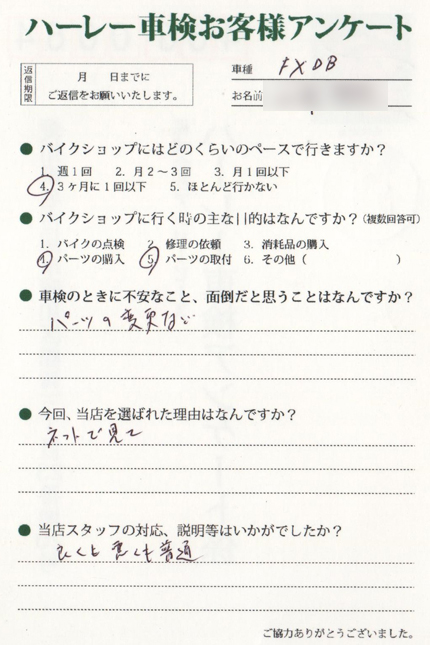 ハーレー車検お客様アンケート
返信期限
月 日までに
ご返信をお願いいたします。
車種 FXDB
お名前
● バイクショップにはどのくらいのペースで行きますか？
1. 週1回 2. 月2～3回 3. 月1回以下
4. 3ヶ月に1回以下 5. ほとんど行かない
● バイクショップに行く時の主な目的はなんですか？(複数回答可)
1. バイクの点検 2. 修理の依頼 3. 消耗品の購入
4. パーツの購入 5. パーツの取付 6. その他（ ）
● 車検のときに不安なこと、面倒だと思うことはなんですか？
パーツの変更など
● 今回、当店を選ばれた理由はなんですか？
ネットで見て
● 当店スタッフの対応、説明等はいかがでしたか？
良くも悪くも普通
ご協力ありがとうございました。